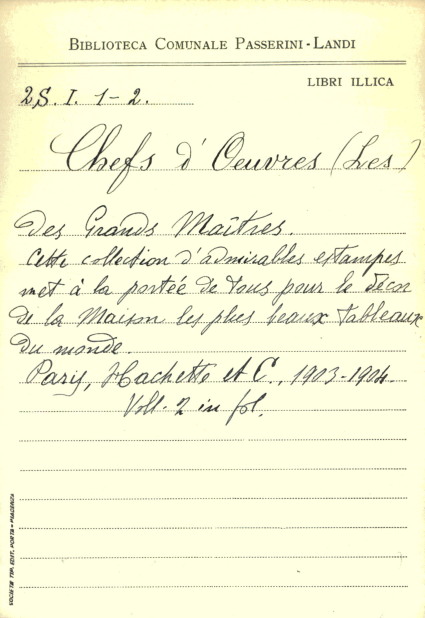 BIBLIOTECA COMUNALE PASSERINI-LANDI
LIBRI ILLICA
2S. I. 1-2.
Chefs d'Oeuvres (Les)
des Grands Maîtres.
Cette collection d'admirables estampes
met à la portée de tous pour le décor
de la Maison les plus beaux tableaux
du monde.
Paris, Hachette et C. 1903-1904
Voll. 2 in fol.
SOCIETÀ TIP. EDIT. PORTA - PIACENZA